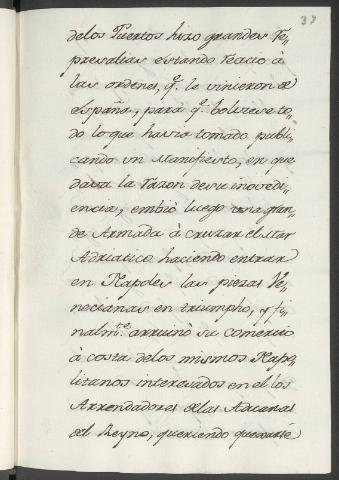 37
delos Puertos hizo grandes re„
presalias estando recio à
las ordenes, q.e le vinieron de
España, para q.e bolviese to„
do lo que havia tomado publi„
cando un Manifiesto, en que
dava la razon de su inovedi„
encia, embiò luego una gran„
de Armada à cruzar el Mar
Adriatico haciendo entrar
en Napoles las presas Ve„
necianas en triumpho, y fi„
nalm.te arruinò su comercio
à costa delos mismos Napo„
litanos interesados en el los
Arrendadores delas Aduanas
del Reyno, queriendo quexarse